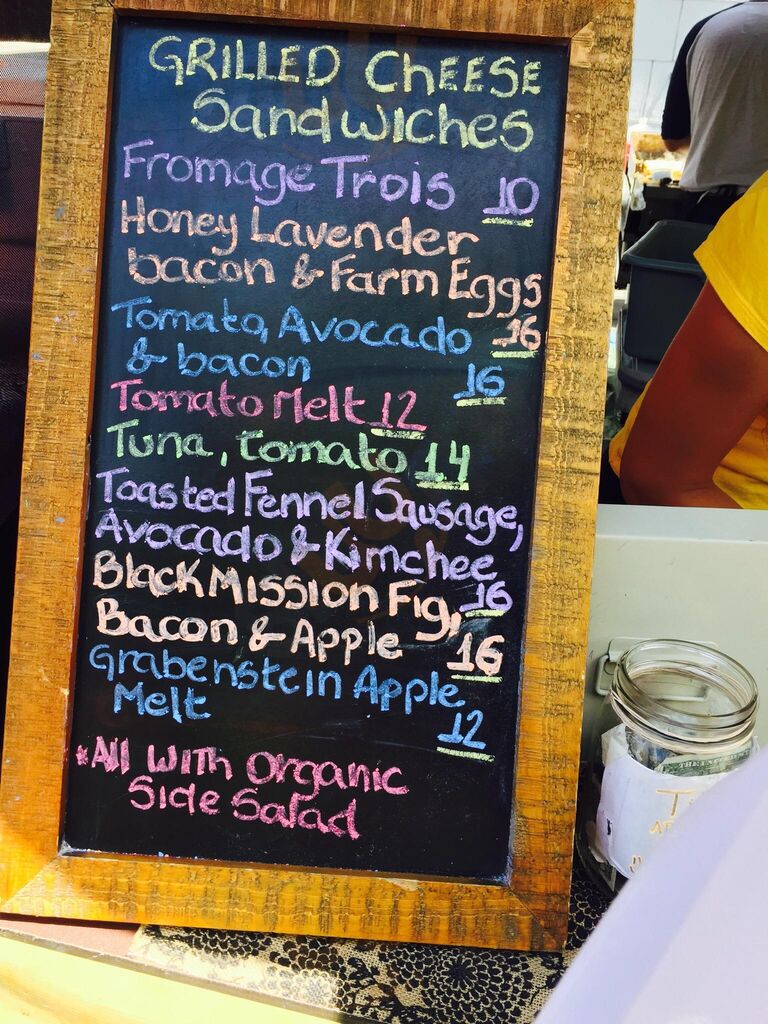 GRILLED CHEESE
Sandwiches
Fromage Trois 10
Honey Lavender
bacon & Farm Eggs
16
Tomato, Avocado
& bacon 16
Tomato Melt 12
Tuna, tomato 14
Toasted Fennel Sausage,
Avocado & Kimchee
16
Black Mission Fig,
Bacon & Apple 16
Grabenstein Apple
Melt 12
*All with organic
Side Salad